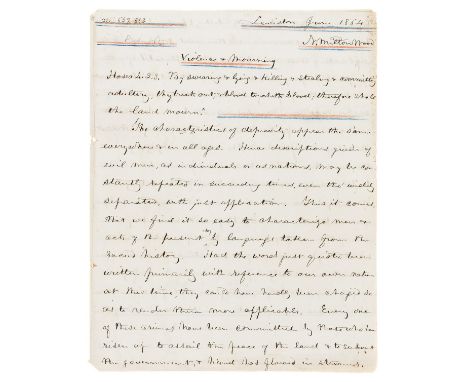 Lewiston June 1864
N. Milton Wood
Violence & Mourning
Hosea 4. 2.3. By swearing & lying & killing & stealing & committing
adultery, they break out, & blood toucheth blood, therefore shall
the land mourn.
The characteristics of depravity appear the same
everywhere & in all ages. Hence descriptions given of
evil men, as individuals or as nations, may be con-
stantly repeated in succeeding times, even tho widely
separated, with just application. Thus it comes
that we find it so easy to characterize men &
acts of the present by language taken from the
sacred history. Had the words just quoted been
written primarily with reference to our own nation
at this time, they could have hardly been changed so
as to render them more applicable. Every one
of these crimes have been committed by those who have
risen up to assail the peace of the land & to subvert
the government, & blood has flowed in streams.